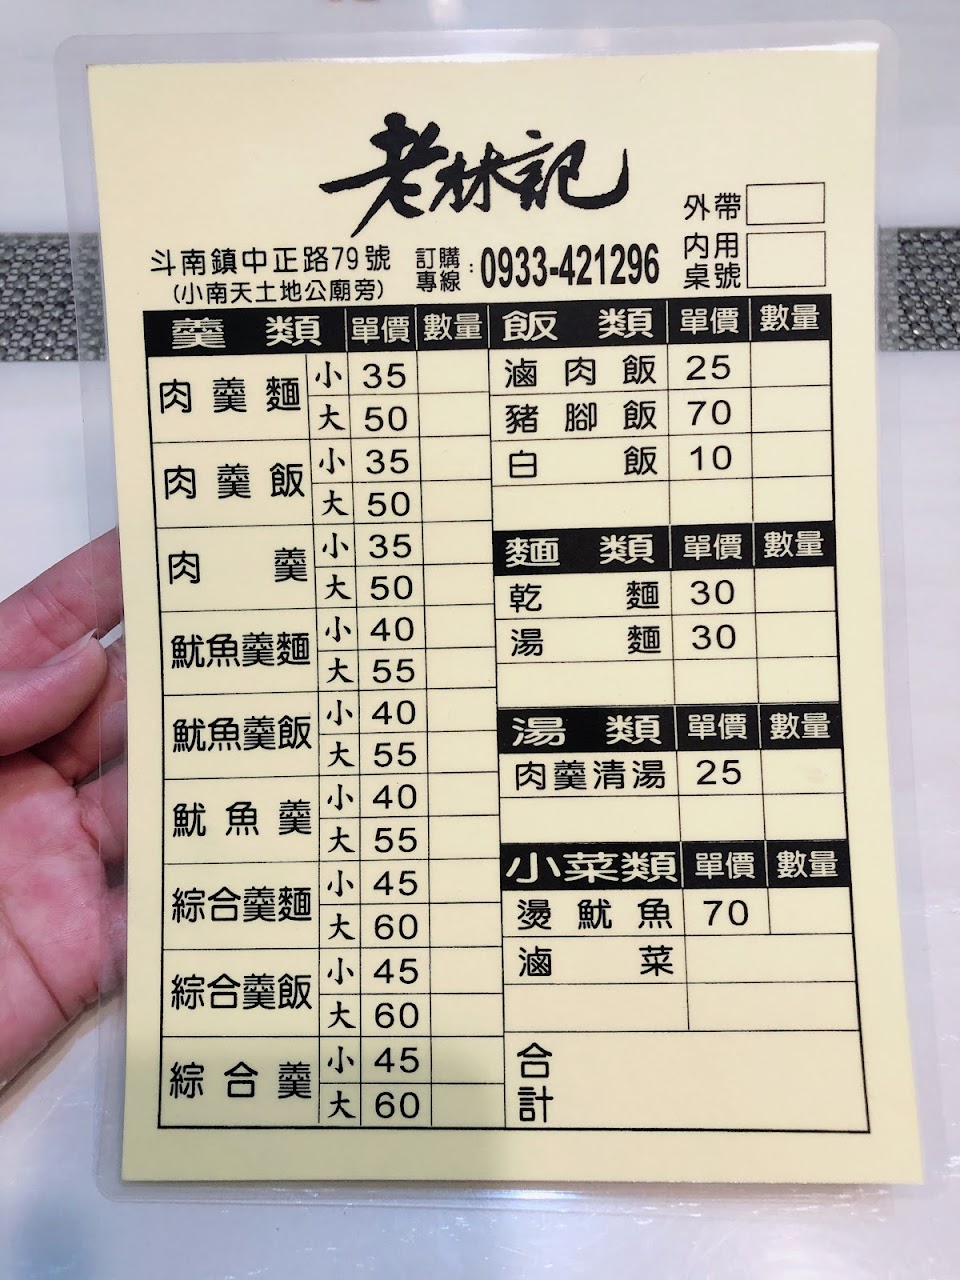 老林記
外帶
內用
桌號
斗南鎮中正路79號
(小南天土地公廟旁)
訂購專線：0933-421296
羹類 單價 數量
肉羹麵 小 35
大 50
肉羹飯 小 35
大 50
肉羹 小 35
大 50
魷魚羹麵 小 40
大 55
魷魚羹飯 小 40
大 55
魷魚羹 小 40
大 55
綜合羹麵 小 45
大 60
綜合羹飯 小 45
大 60
綜合羹 小 45
大 60
飯類 單價 數量
滷肉飯 25
豬腳飯 70
白飯 10
麵類 單價 數量
乾麵 30
湯麵 30
湯類 單價 數量
肉羹清湯 25
小菜類 單價 數量
燙魷魚 70
滷菜
合計